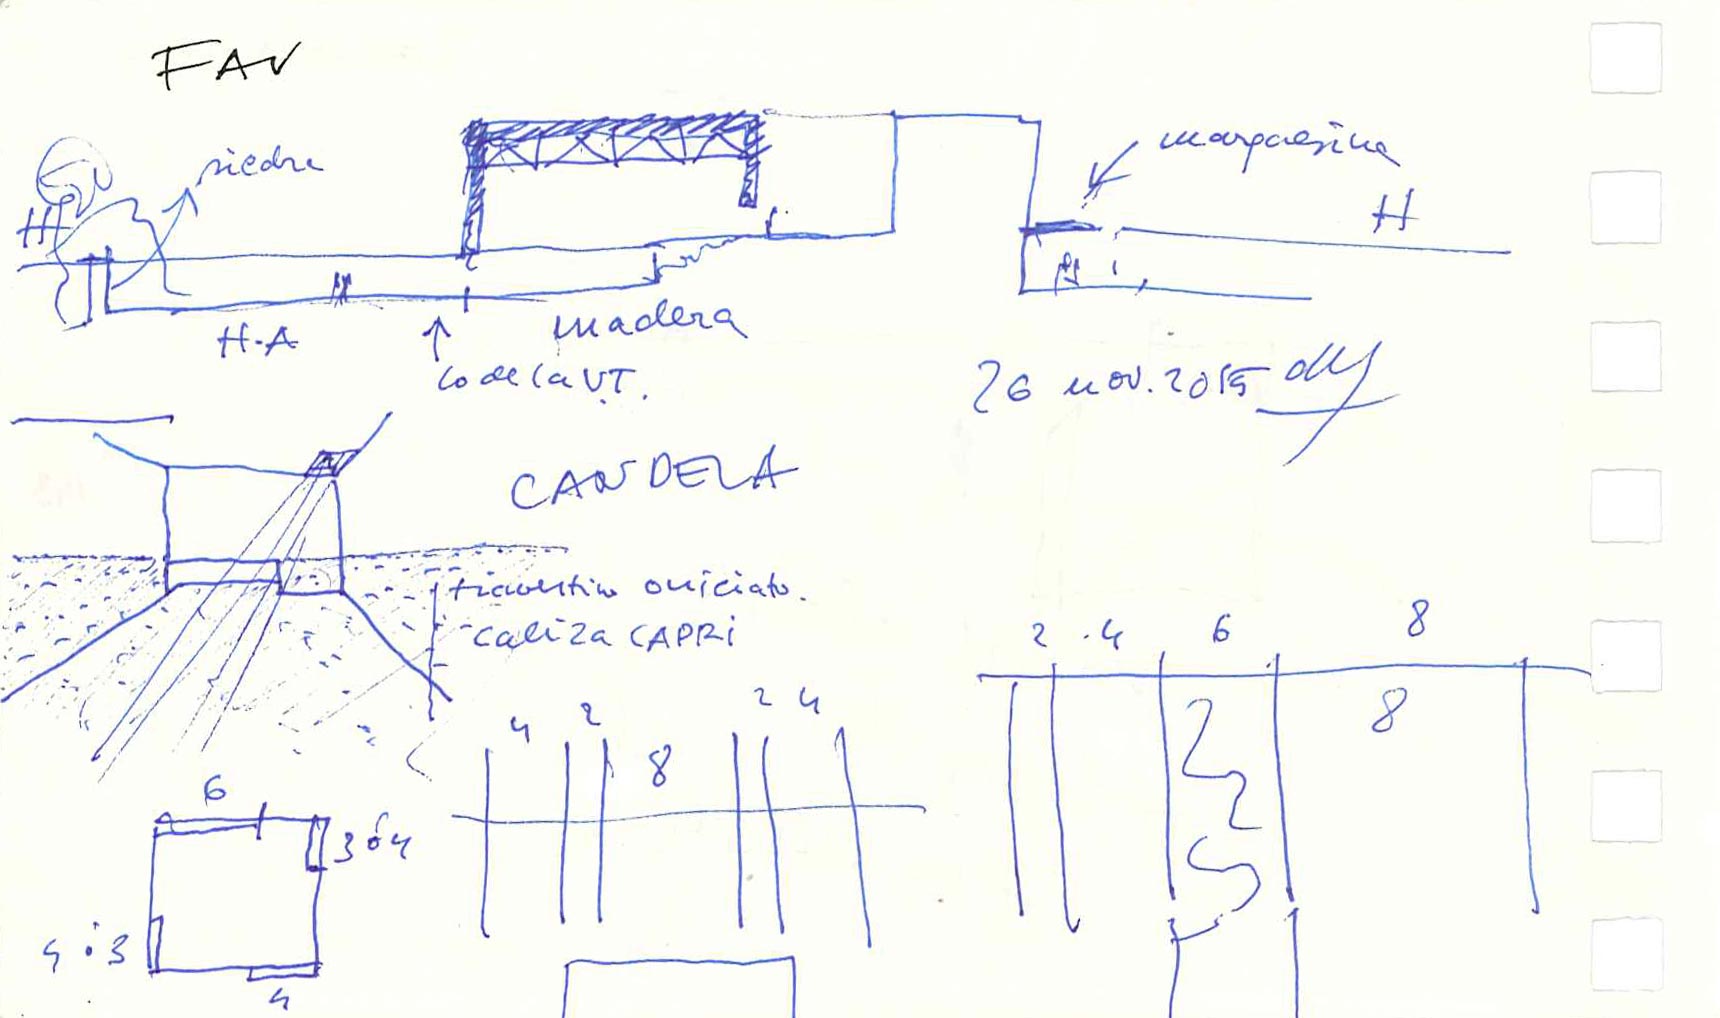 FAV
piedra
marquesina
H
H
H.A
madera
lo de la U.T.
26 nov. 2015
CANDELA
travertino oniciato.
caliza CAPRI
2 4 6 8
8
4 2 8 2 4
6
3 ó 4
4 ó 3
4